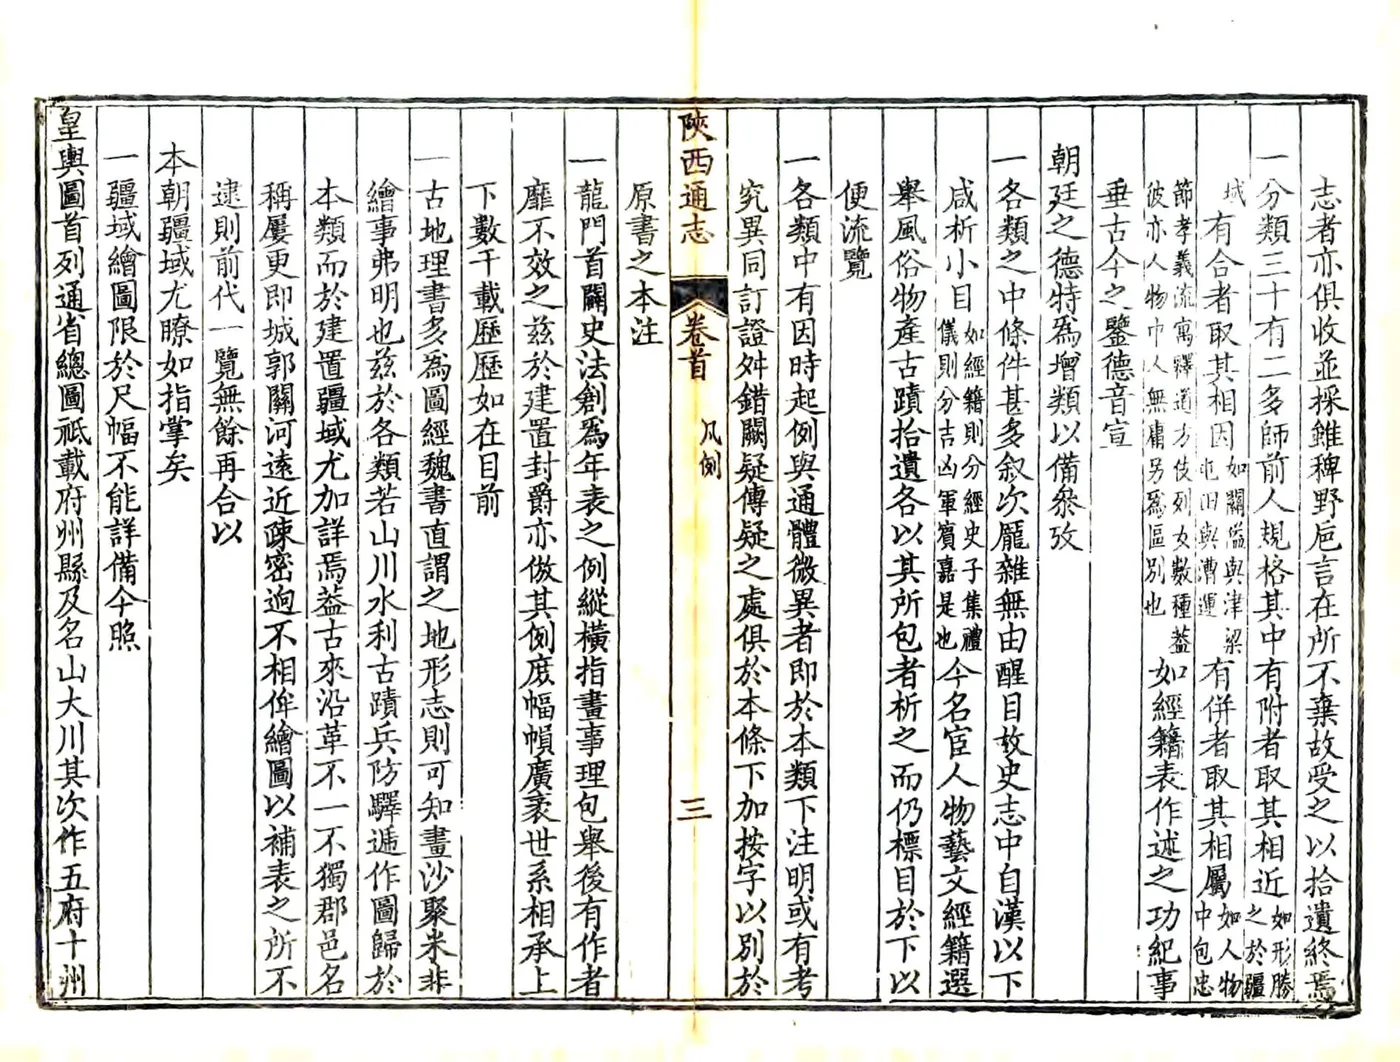 志者亦俱收並採雖稗野巵言在所不棄故受之以拾遺終焉
一分類三十有二多師前人規格其中有附者取其相近如形勝之於疆
域有合者取其相因如關隘與津梁屯田與漕運有併者取其相屬如人物中包忠
節孝義流寓釋道方伎列女數種葢彼亦人物中人無庸另爲區別也如經籍表作述之功紀事
垂古今之鑒德音宣
朝廷之德特爲增類以備叅攷
一各類之中條件甚多叙次龎雜無由醒目故史志中自漢以下
咸析小目如經籍則分經史子集禮儀則分吉凶軍賓嘉是也今名宦人物藝文經籍選
舉風俗物產古蹟拾遺各以其所包者析之而仍標目於下以
便流覽
一各類中有因時起例與通體微異者即於本類下注明或有考
究異同訂證舛錯闕疑傳疑之處俱於本條下加按字以別於
陝西通志 卷首 凡例 三
原書之本注
一龍門首闢史法創爲年表之例縱橫指畫事理包舉後有作者
靡不效之茲於建置封爵亦倣其例度幅幀廣袤世系相承上
下數千載歷歷如在目前
一古地理書多爲圖經魏書直謂之地形志則可知畫沙聚米非
繪事弗明也茲於各類若山川水利古蹟兵防驛遞作圖歸於
本類而於建置疆域尤加詳焉葢古來沿革不一不獨郡邑名
稱屢更即城郭關河遠近疎密逈不相侔繪圖以補表之所不
逮則前代一覽無餘再合以
本朝疆域尤瞭如指掌矣
一疆域繪圖限於尺幅不能詳備今照
皇輿圖首列通省總圖祇載府州縣及名山大川其次作五府十州